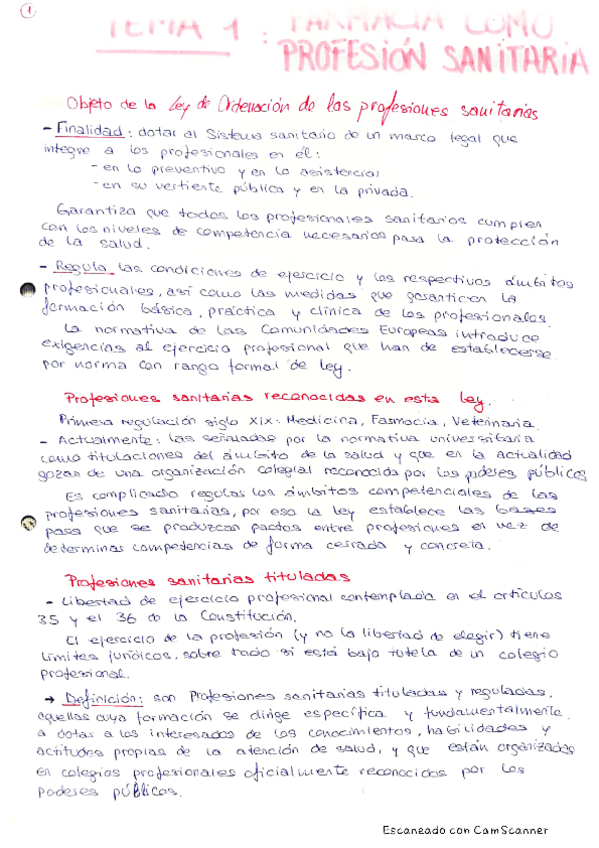 1
TEMA 1: FARMACIA COMO
PROFESIÓN SANITARIA
Objeto de la Ley de Ordenación de las profesiones sanitarias
- Finalidad: dotar al Sistema sanitario de un marco legal que
integre a los profesionales en él:
- en lo preventivo y en lo asistencial
- en su vertiente pública y en la privada.
Garantiza que todos los profesionales sanitarios cumplen
con los niveles de competencia necesarios para la protección
de la salud.
- Regula las condiciones de ejercicio y los respectivos ámbitos
profesionales, así como las medidas que garanticen la
formación básica, práctica y clínica de los profesionales.
La normativa de las Comunidades Europeas introduce
exigencias al ejercicio profesional que han de establecerse
por norma con rango formal de ley.
Profesiones sanitarias reconocidas en esta ley.
Primera regulación siglo XIX: Medicina, Farmacia, Veterinaria.
- Actualmente: las señaladas por la normativa universitaria
como titulaciones del ámbito de la salud y que en la actualidad
gozan de una organización colegial reconocida por los poderes públicos
Es complicado regular los ámbitos competenciales de las
profesiones sanitarias, por eso la ley establece las bases
para que se produzcan pactos entre profesiones en vez de
determinar competencias de forma cerrada y concreta.
Profesiones sanitarias tituladas
- Libertad de ejercicio profesional contemplada en el artículos
35 y el 36 de la Constitución.
El ejercicio de la profesión (y no la libertad de elegir) tiene
límites jurídicos, sobre todo si está bajo tutela de un colegio
profesional.
→ Definición: son Profesiones sanitarias tituladas y reguladas,
aquellas cuya formación se dirige específica y fundamentalmente
a dotar a los interesados de los conocimientos, habilidades y
actitudes propias de la atención de salud, y que están organizadas
en colegios profesionales oficialmente reconocidos por los
poderes públicos.
Escaneado con CamScanner